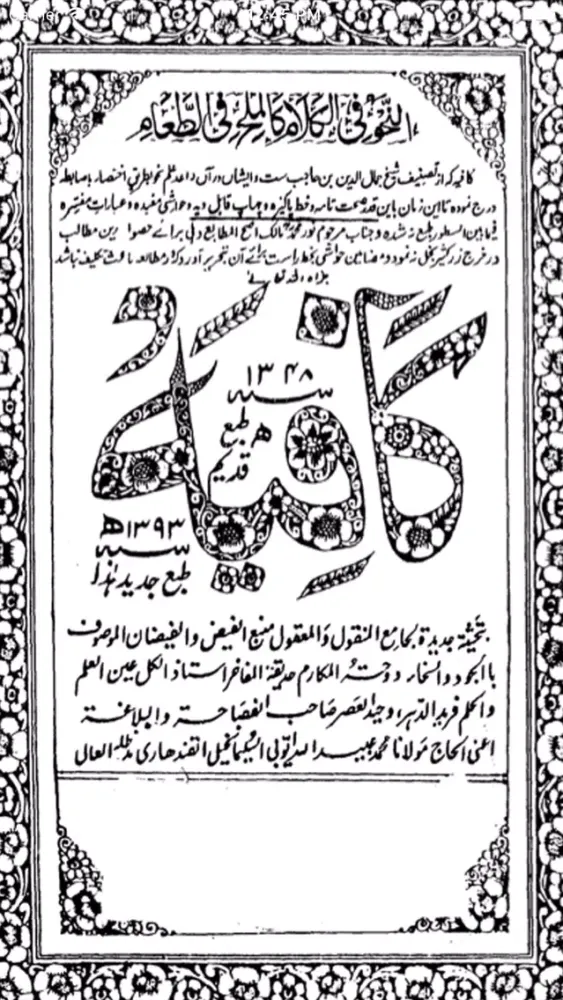 12:45 PM
النحو في الكلام كالملح في الطعام
کافیه که از تصنیف شیخ جمال الدین بن حاجب ست و ایشان در آن داد علم نحو بطریق اختصار باضابطه
درج نموده تا این زمان باین قدر صحت تامه و خط پاکیزه و چاپ قابل دید و حواشی مفیده و عبارات مفسره
فیما بین السطور طبع نه شده و جناب مرحوم نور محمد مالک اصح المطابع دہلی برائے حصول این مطالب
در خرج زر کثیر بخل نه نمود و مضامین حواشی بخط راست برائے آن تحریر آورد که در مطالعه باعث تکلیف نباشد
کافیه
سنه ۱۳۴۸ ھ
طبع قدیم
سنه ۱۳۹۳ھ
طبع جدید ہذا
بتحشیة جدیدة لجامع المنقول والمعقول منبع الفیض والفیضان الموصوف
باالجود والسخاء دوحة المکارم حدیقة المفاخر استاذ الکل عین العلم
والحلم فرید الدہر وحید العصر صاحب الفصاحة والبلاغة
اعنی الحاج مولانا محمد عبید الله ایوبی السلیمانخیل القندهاری مدظله العال